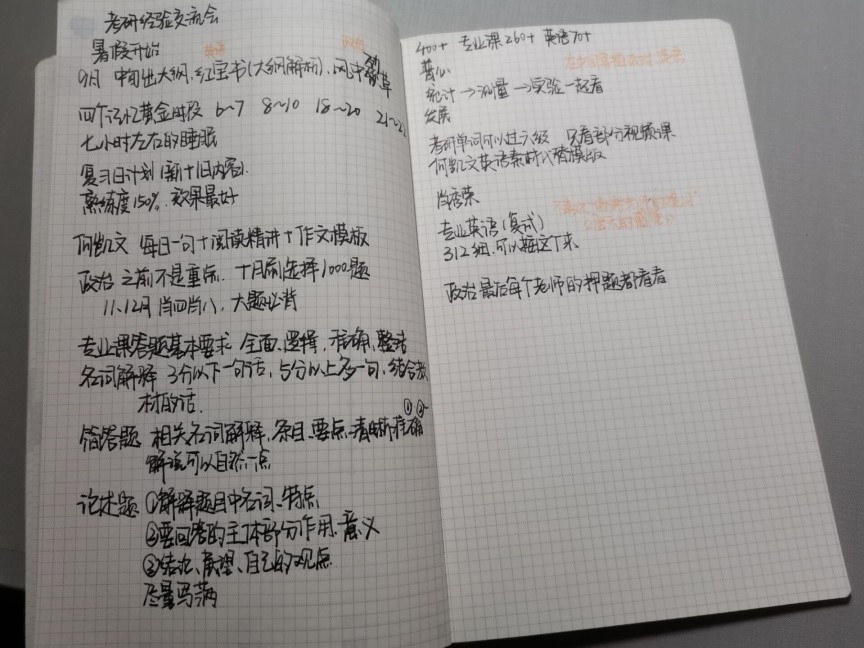 考研经验交流会
暑假开始
9月 中旬出大纲,红宝书(大纲解析),风中劲草
四个记忆黄金时段 6~7 8~10 18~20 21~22
七小时左右的睡眠
复习日计划(新+旧内容)
熟练度150%,效果最好
何凯文 每日一句+阅读精讲+作文模版
政治 之前不是重点,十月刷选择1000题
11、12月 肖四肖八,大题必背
专业课答题基本要求 全面、逻辑、准确、整洁
名词解释 3分以下一句话,5分以上多一句,结合教
材的话.
简答题 相关名词解释,条目、要点、清晰准确
①②~
解说可以自然一点
论述题 ①解释题目中名词、特点
②要回答的主体部分作用、意义
③结论、展望、自己的观点
尽量写满
400+ 专业课260+ 英语70+
普心
统计→测量→实验一起看
发展
考研单词可以过六级 只看部分视频课
何凯文英语素材代替模版
肖秀荣
专业英语(复试)
312细,可以接这个来
政治最后每个老师的押题都看看